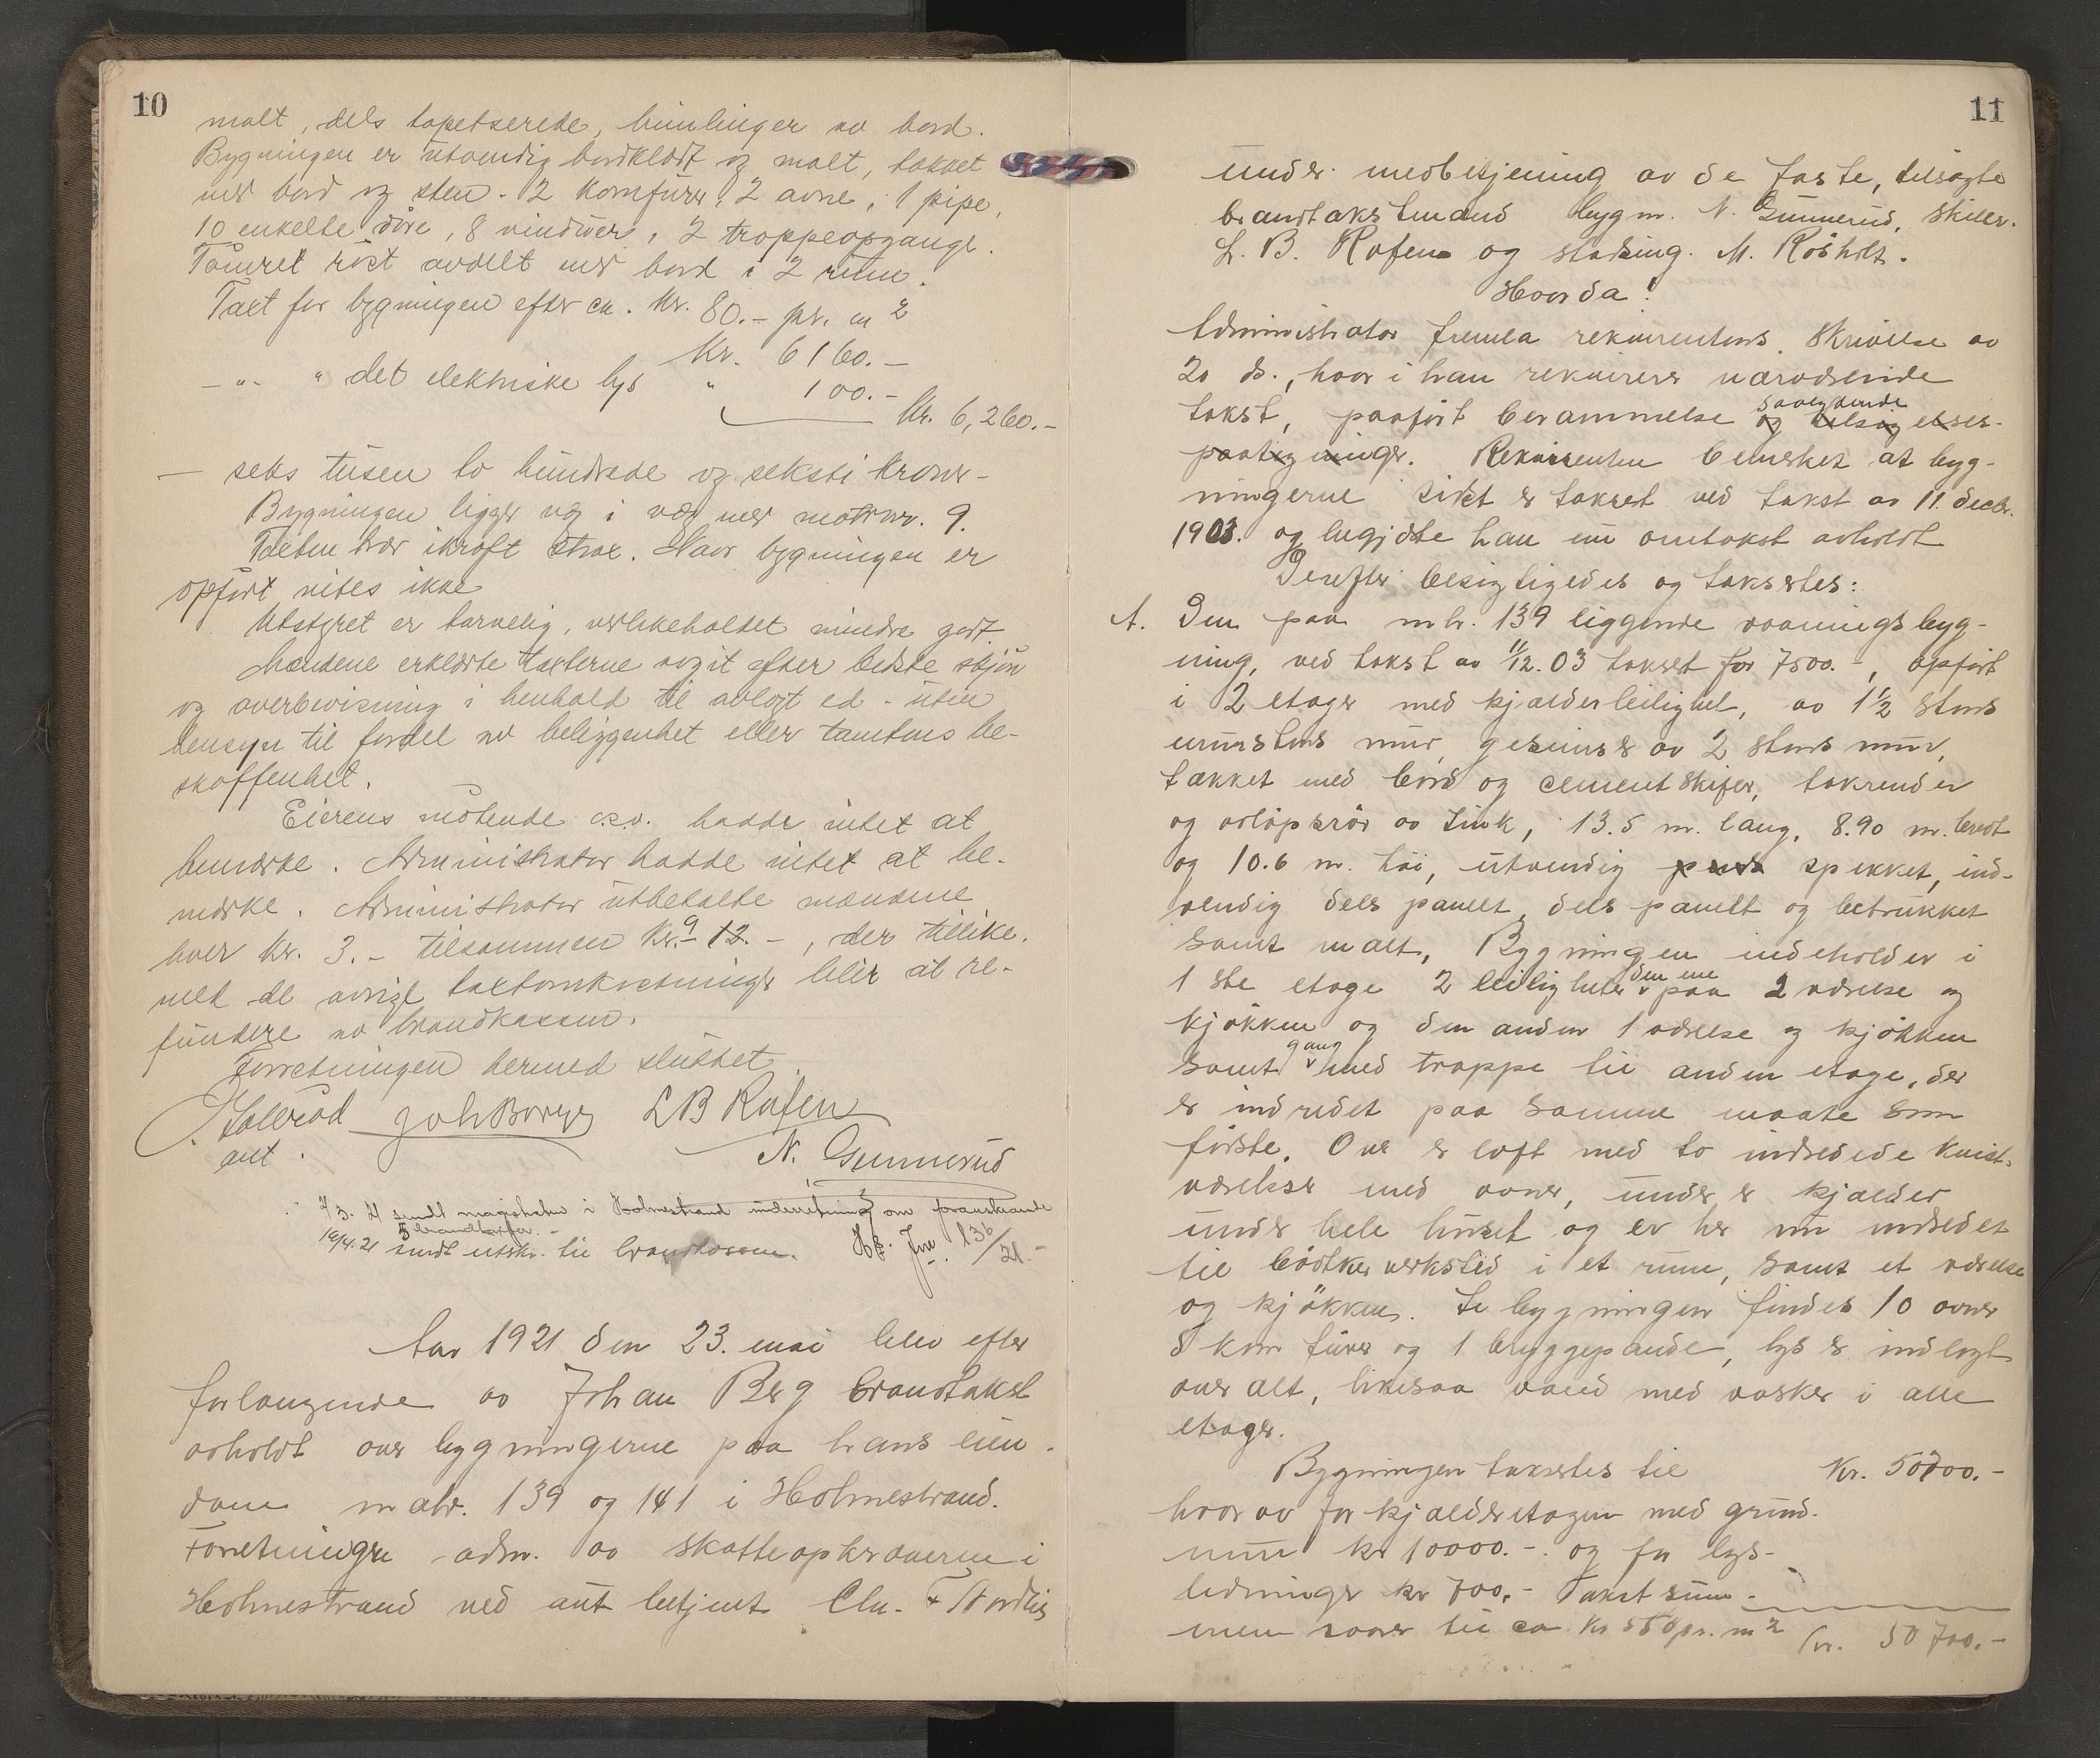 10
malt, dels tapetserede, himlinger av bord.
Bygningen er utvendig bordklædt og malt, takket
med bord og sten. 2 komfurer, 2 ovne, 1 pipe,
10 enkelte døre, 8 vinduer, 2 trappeopgange.
Tomret røst avdelt med bord i 2 rum.
Taxt for bygningen efter ca. kr. 80.- pr. m²
Kr. 6160.-
-"- " det elektriske lys " 100.-
Kr. 6,260.-
— seks tusen to hundrede og seksti kroner -
Bygningen ligger væg i væg med matrnr. 9.
Taxten trær ikraft strax. Naar bygningen er
opført vites ikke
Utstyret er tarvelig, vedlikeholdet mindre godt.
Mændene erklærte taxterne avgit efter bedste skjøn
og overbevisning i henhold til avlagt ed - uten
hensyn til fordel av beliggenhet eller tomtens be-
skaffenhet.
Eierens møtende o.s.v. hadde intet at
bemærke. Administrator hadde intet at be-
mærke. Administrator utbetalte mændene
hver kr. 3.- tilsammen kr. 9.- 12.-, der tillike-
med de øvrige taxtomkostninger blir at re-
fundere av brandkassen.
Forretningen dermed sluttet.
Joh Borge L B Rafen
aut. N. Gunnerud
7/3. 21 sendt magistraten i Holmestrand underretning om foranstaaende
5 brandtaxter.-
16/4.21 sendt utskr. til brandkassen. Jnr 136/21.-
Aar 1921 den 23. mai blev efter
forlangende av Johan Berg brandtakst
avholdt over bygningerne paa hans eien-
dom matr. 139 og 141 i Holmestrand.
Forretningen adm. av skatteopkræveren i
Holmestrand ved aut. betjent Chr. F. Nordlie
11
under medbetjening av de faste, tilsagte
brandtakstmænd bygm. N. Gunnerud, skredd.
L. B. Rafen og stadsing. M. Røsholt.
Hvorda!
Administrator fremla rekvirentens skrivelse av
20 ds., hvor i han rekvirerer nærværende
takst, paaført berammelse savelydende og tilsigelses-
paategninger. Rekvirenten bemerket at byg-
ningerne sidst er takseret ved takst av 11. decbr.
1903. og begjærte han nu omtakst avholdt
Derefter besigtigedes og taksertes:
A. Den paa mtr. 139 liggende vaaningsbyg-
ning, ved takst av 11/12.03 taksert for 7500.-, opført
i 2 etager med kjælderleilighet, av 1½ stens
murstens mur, gesimser av 2 stens mur,
takket med bord og cementskifer, takrender
og avløpsrør av sink, 13.5 m. lang, 8.90 m. bredt
og 10.6 m. høi, utvendig puds spekket, ind-
vendig dels panelt, dels panelt og betrukket
samt malt, Bygningen indeholder i
1ste etage 2 leiligheter den ene paa 2 værelse og
kjøkken og den anden 1 værelse og kjøkken
samt gang med trappe til anden etage, der
er indredet paa samme maate som
første. Over er loft med to indredede kvist-
værelser med ovner, under er kjælder
under hele huset og er her nu indredet
til bødkerverksted i et rum, samt et værelse
og kjøkken. I bygningen findes 10 ovner
8 komfurer og 1 bryggepande, lys er indlagt
over alt, likesaa vand med vasker i alle
etager.
Bygningen taksertes til Kr. 50700.-
hvor av for kjælderetagen med grund-
mur kr 10000.-. og for lys-
ledninger kr 700.- Takst sum-
men svarer til ca kr 550 pr. m² Kr. 50700.-